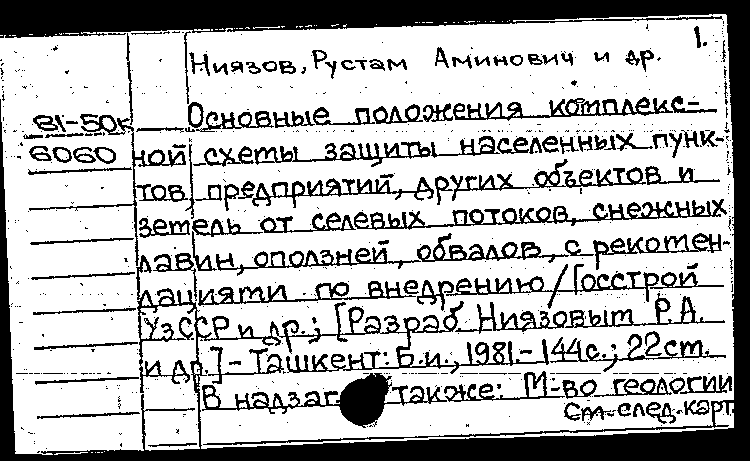 1.
Ниязов, Рустам Аминович и др.
81-50к Основные положения комплекс-
6060 ной схемы защиты населенных пунк-
тов, предприятий, других объектов и
земель от селевых потоков, снежных
лавин, оползней, обвалов, с рекомен-
дациями по внедрению / Госстрой
УзССР и др.; [Разраб. Ниязовым Р.А.
и др.] - Ташкент: Б.и., 1981. - 144с.; 22см.
В надзаг. также: М-во геологии
См. след. карт.